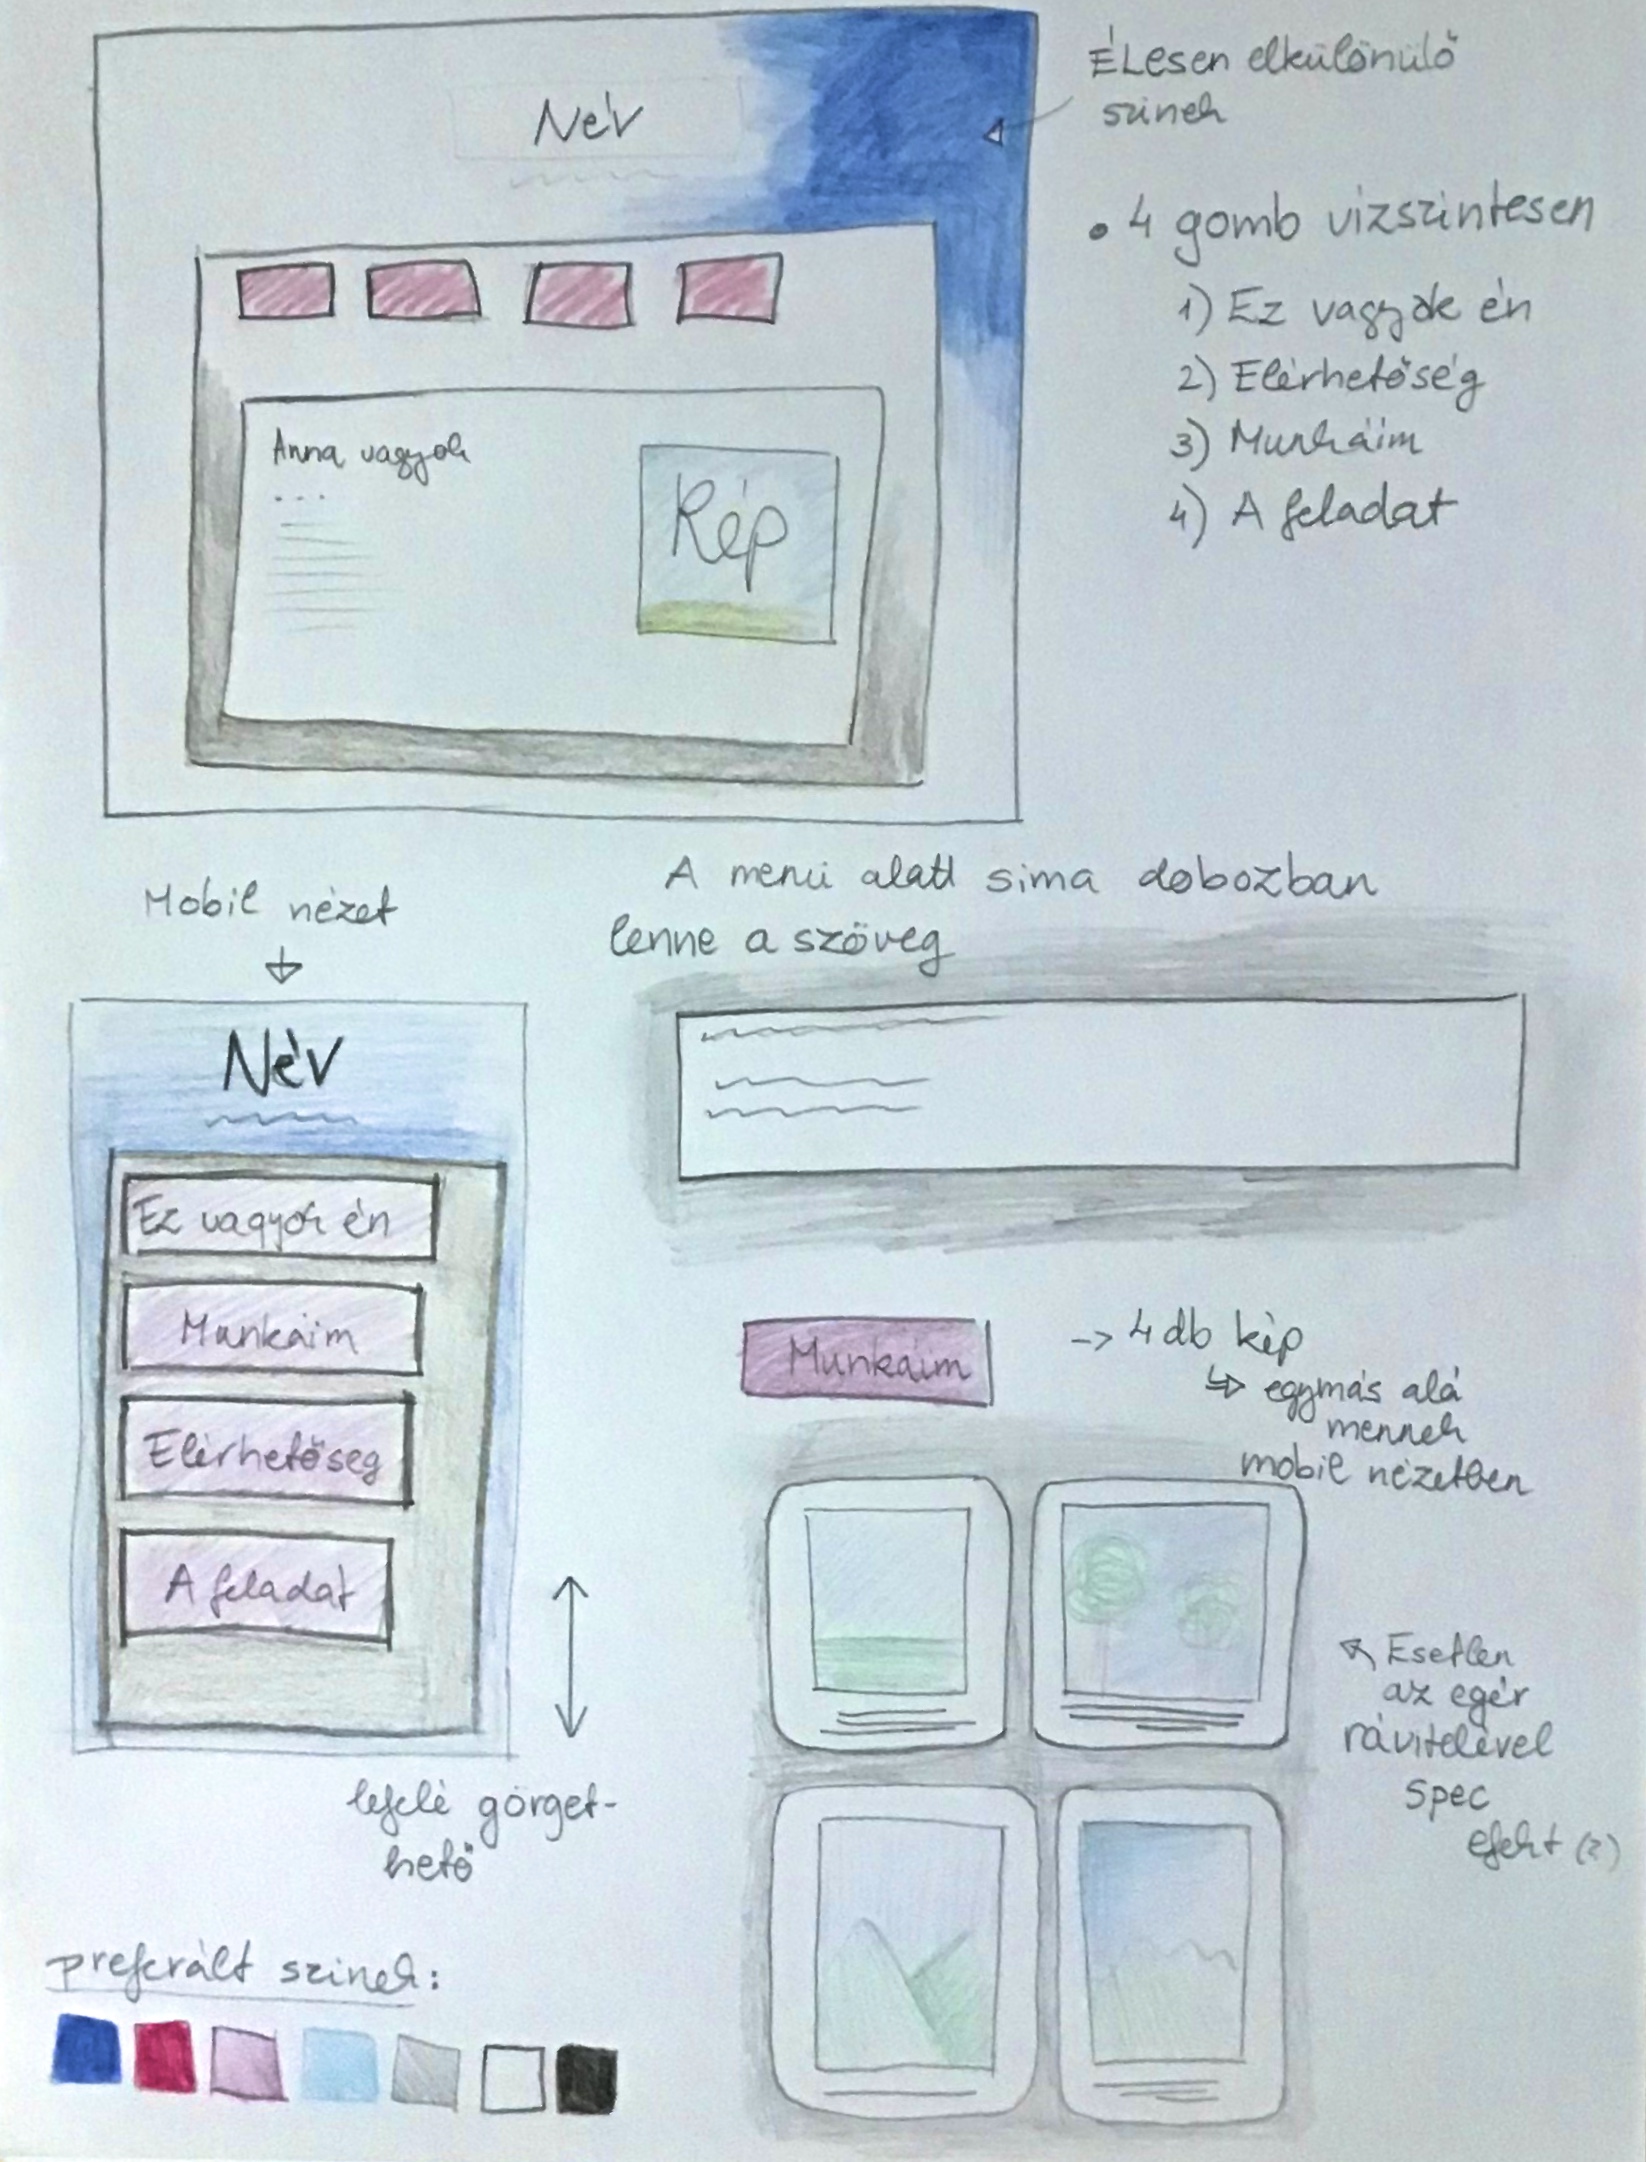 Élesen elkülönülő
színek
Név
• 4 gomb vizszintesen
1) Ez vagyok én
2) Elérhetőség
3) Munkáim
4) A feladat
Anna vagyok
...
Kép
A menü alatt sima dobozban
lenne a szöveg
Mobil nézet
Név
Ez vagyok én
Munkáim
Elérhetőseg
A feladat
lefelé görget-
hető
Munkáim
-> 4 db kép
↳ egymás alá
mennek
mobil nézetben
↖ Esetlen
az egér
rávitelével
spec
efekt (2)
preferált szinek: